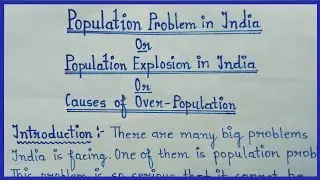 Population Problem in India
Or
Population Explosion in India
Or
Causes of Over-Population
Introduction :- There are many big problems
India is facing. One of them is population prob
This problem is so serious that it cannot be